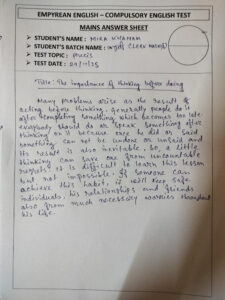 EMPYREAN ENGLISH – COMPULSORY ENGLISH TEST
MAINS ANSWER SHEET
➤ STUDENT'S NAME : MIRA
➤ STUDENT'S BATCH NAME : CLERK
➤ TEST TOPIC : Precis
➤ TEST DATE :
Title: The importance of thinking before doing
Many problems arise as the result of
acting before thinking. generally people do it
after completing something which becomes too late
everybody should do or speak something after
thinking on it because once he did or said
something can not be undone or unsaid and
its result is also inevitable. So, a little
thinking can save one from uncountable
regrets. It is difficult to learn this lesson
but not impossible. If someone can
achieve this habit, it will keep safe
individuals, his relationships and friends
also from much necessary worries throughout
his life.